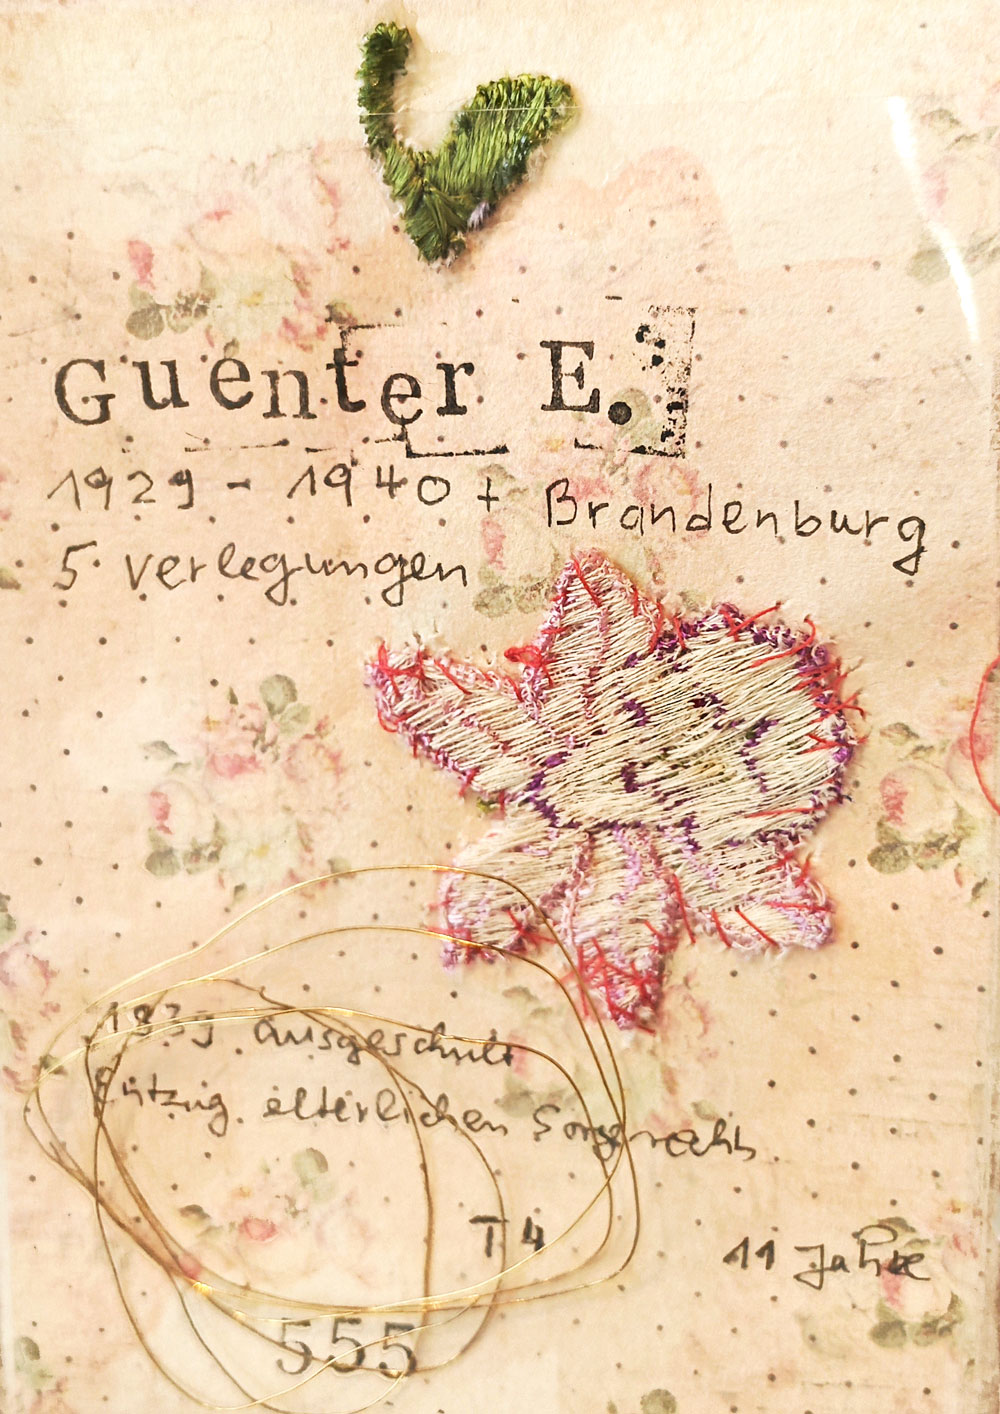 Guenter E.
1929 - 1940 + Brandenburg
5 verlegungen
1939 ausgeschult
Entzug elterlichen Sorgerechts
T4
11 Jahre
555